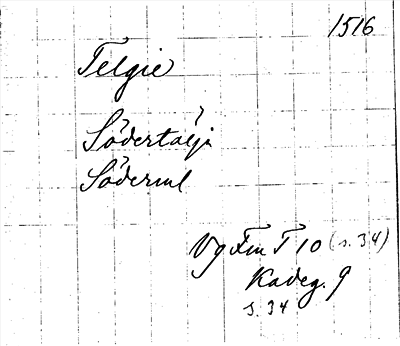 1516
Telgie
Södertälje
Söderml
Vg Fm T 10 (s. 34)
Kadeg. 9
s. 34